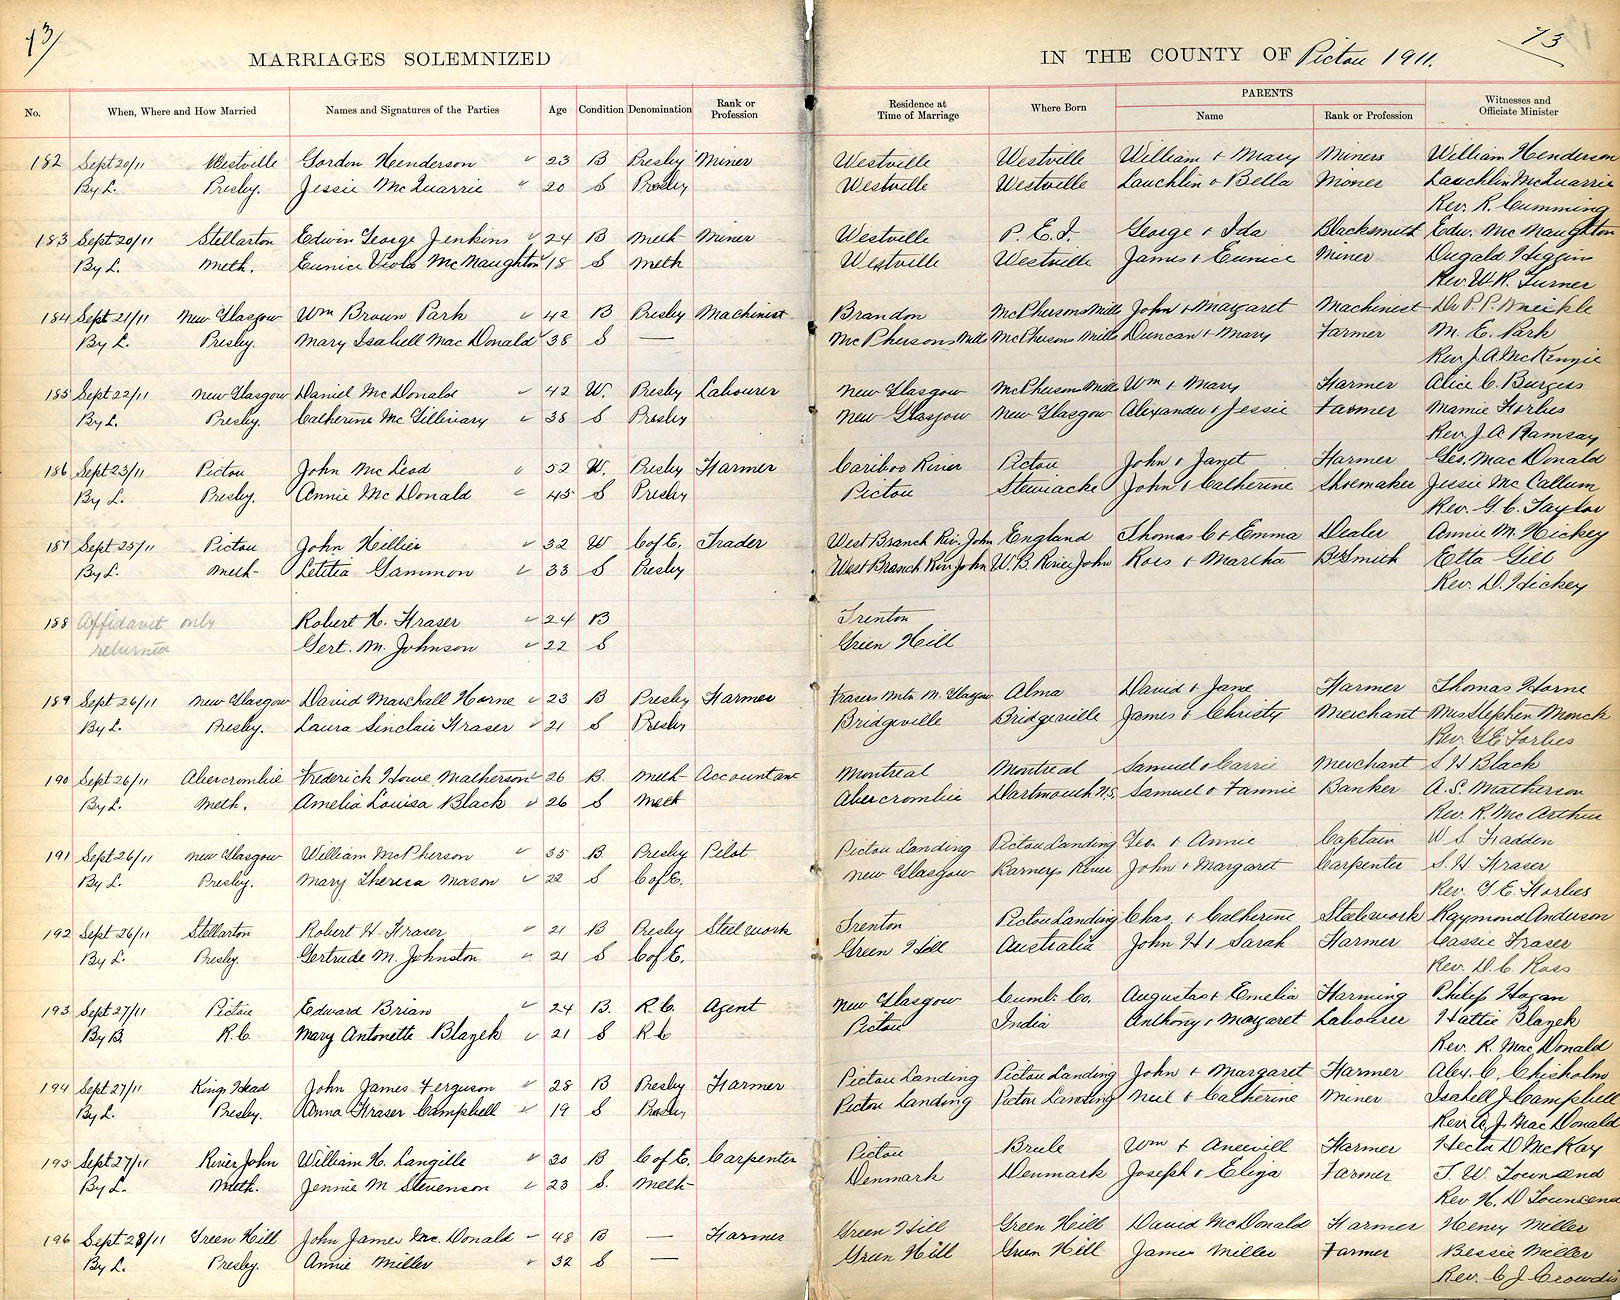 73/
73
MARRIAGES SOLEMNIZED
IN THE COUNTY OF Pictou 1911.
No. When, Where and How Married Names and Signatures of the Parties Age Condition Denomination Rank or Profession Residence at Time of Marriage Where Born PARENTS Name Rank or Profession Witnesses and Officiate Minister
182 Sept 20/11 Westville Gordon Henderson 23 B Presby Miner Westville Westville William & Mary Miners William Henderson
By L. Presby. Jessie McQuarrie 20 S Presby Westville Westville Lauchlin & Bella Miner Lauchlin McQuarrie
Rev. R. Cumming
183 Sept 20/11 Stellarton Edwin George Jenkins 24 B Meth Miner Westville P. E. I. George & Ida Blacksmith Edw. McNaughton
By L. Meth. Eunice Viola McNaughton 18 S Meth Westville Westville James & Eunice Miner Dugald Higgins
Rev. W. R. Turner
184 Sept 21/11 New Glasgow Wm Brown Park 42 B Presby Machinist Brandon McPhersons Mills John & Margaret Machinist Dr P. P.
By L. Presby. Mary Isabell MacDonald 38 S — McPhersons Mills McPhersons Mills Duncan & Mary Farmer M. E. Park
Rev. J. A. McKenzie
185 Sept 22/11 New Glasgow Daniel McDonald 42 W. Presby Labourer New Glasgow McPherson Mills Wm & Mary Farmer Alice C. Burgess
By L. Presby. Catherine McGillivary 38 S Presby New Glasgow New Glasgow Alexander & Jessie Farmer Mamie Forbes
Rev. J. A. Ramsay
186 Sept 23/11 Pictou John McLeod 52 W. Presby Farmer Cariboo River Pictou John & Janet Farmer Geo. MacDonald
By L. Presby. Annie McDonald 45 S Presby Pictou Stewiacke John & Catherine Shoemaker Jessie McCallum
Rev. G. C. Taylor
187 Sept 25/11 Pictou John Hellier 32 W C of E. Trader West Branch Riv. John England Thomas C & Emma Dealer Annie M. Hickey
By L. Meth Letitia Gammon 33 S Presby West Branch Riv. John W. B. River John Ross & Martha B Smith Etta Gill
Rev. D. Hickey
188 Affidavit only Robert H. Fraser 24 B Trenton
returned Gert. M. Johnson 22 S Green Hill
189 Sept 26/11 New Glasgow David Marshall Horne 23 B Presby Farmer Frasers Mtn N. Glasgow Alma David & Jane Farmer Thomas Horne
By L. Presby. Laura Sinclair Fraser 21 S Presby Bridgeville Bridgeville James & Christy Merchant Mrs Stephen Monck
Rev. G E Forbes
190 Sept 26/11 Abercrombie Frederick Howe Matherson 26 B. Meth Accountant Montreal Montreal Samuel & Carrie Merchant S H Black
By L. Meth. Amelia Louisa Black 26 S Meth Abercrombie Dartmouth N.S. Samuel & Fannie Banker A. S. Matherson
Rev. R. McArthur
191 Sept 26/11 New Glasgow William McPherson 35 B. Presby Pilot Pictou Landing Pictou Landing Geo. & Annie Captain W S Fadden
By L. Presby. Mary Theresa Mason 22 S C of E. New Glasgow Barneys River John & Margaret Carpenter S. H Fraser
Rev. G E. Forbes
192 Sept 26/11 Stellarton Robert H. Fraser 21 B Presby Steel work Trenton Pictou Landing Chas. & Catherine Steelwork Raymond Anderson
By L. Presby Gertrude M. Johnston 21 S C of E. Green Hill Australia John H & Sarah Farmer Cassie Fraser
Rev. D. C. Ross
193 Sept 27/11 Pictou Edward Brian 24 B. R. C. Agent New Glasgow Cumb. Co. Augustas & Emelia Farming Philip Hogan
By B. R. C. Mary Antonette Blazek 21 S R C Pictou India Anthony & Margaret Labourer Hattie Blazek
Rev. R. MacDonald
194 Sept 27/11 Kings Head John James Ferguson 28 B Presby Farmer Pictou Landing Pictou Landing John & Margaret Farmer Alex. C. Chisholm
By L. Presby. Anna Fraser Campbell 19 S Presby Pictou Landing Pictou Landing Neil & Catherine Miner Isabell J Campbell
Rev. A. J. MacDonald
195 Sept 27/11 River John William H. Langille 30 B C of E. Carpenter Pictou Brule Wm & Farmer Hector D McKay
By L. Meth. Jennie M Stevenson 23 S. Meth Denmark Denmark Joseph & Eliza Farmer T. W. Townsend
Rev H. D Townsend
196 Sept 28/11 Green Hill John James Mc. Donald 48 B — Farmer Green Hill Green Hill David McDonald Farmer Henry Miller
By L. Presby. Annie Miller 32 S — Green Hill Green Hill James Miller Farmer Bessie Miller
Rev. C J Crowdis